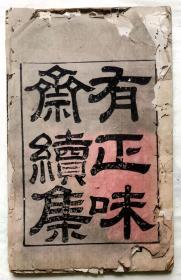 有正味
齋續集